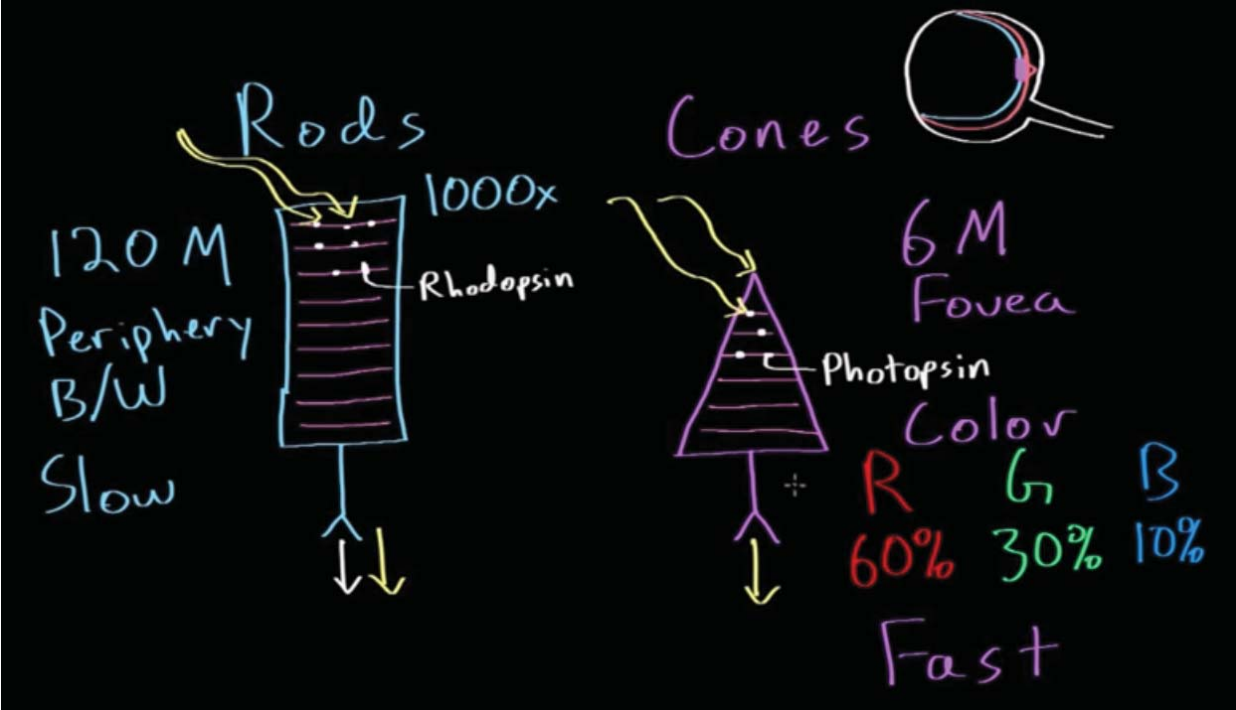 Rods
1000x
120 M
Periphery
B/W
Slow
Rhodopsin
Cones
6 M
Fovea
Photopsin
Color
R G B
60% 30% 10%
Fast